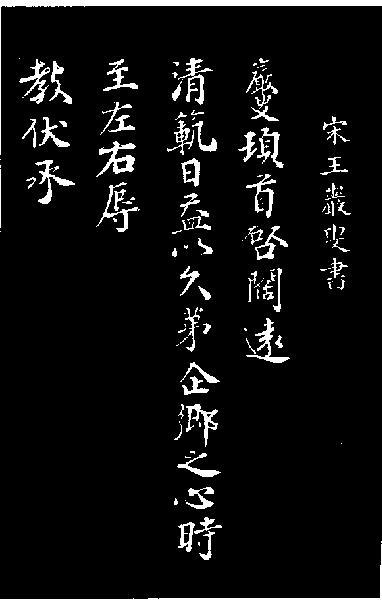 宋王巖叟書
巖叟頓首啓闊遠
清範日益以久第企鄉之心時
至左右辱
教伏承